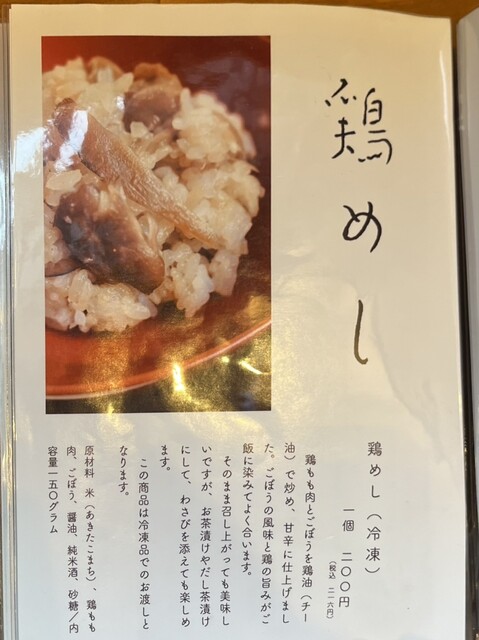 鶏めし
鶏めし（冷凍）
一個　二〇〇円
（税込　二一六円）
鶏もも肉とごぼうを鶏油（チー
油）で炒め、甘辛に仕上げまし
た。ごぼうの風味と鶏の旨みがご
飯に染みてよく合います。
そのまま召し上がっても美味し
いですが、お茶漬けやだし茶漬け
にして、わさびを添えても楽しめ
ます。
この商品は冷凍品でのお渡しと
なります。
原材料　米（あきたこまち）、鶏もも
肉、ごぼう、醤油、純米酒、砂糖／内
容量一五〇グラム